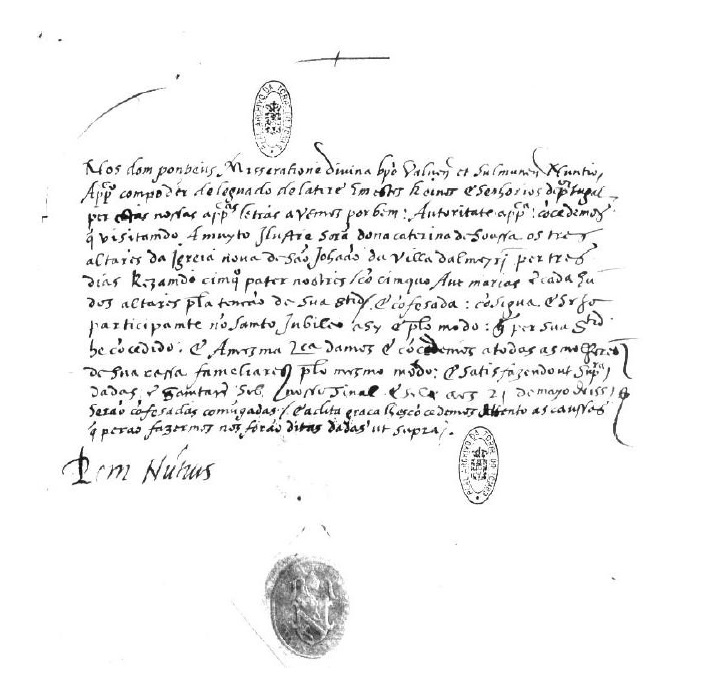 REAL ARCHIVO DA TORRE DO TOMBO
Nos dom ponpeius Misseratione divina bp̃o Valueñ et Sulmuneñ Nuntio
App̃o com poder de leguado de latere Em estes Reinos e Senhorios de p̃tugal
per estas nossas app̃as letras avemos por bem: Autoritate app̃a: cõcedemos
q̃ visitamdo A muyto Ilustre Sorã dona caterina de Soussa os tres
altares da Igreia nova de são Johaão da villa dalmeyrĩ per tres
dias Rezamdo cimq̃o pater nostres / cõ cimquo Ave marias ẽ cada hũ
dos altares p̃la tenção de Sua Stid̃ / e cõfesada: cõsigua e seja
participamte no Santo Jubileo asy e p̃lo modo: q̃ per sua Stid̃
he cõcedido: e A mesma lça damos e cõcedemos a todas as molheres
de Sua cassa fameliares p̃lo mesmo modo: e satisfazendo ut supra
dadas ẽ Sob nosso sinal e selo aos 21 de mayo de
Serão cõfesadas comũgadas / e a dita graça lhes cõcedemos Attento as caussas
q̃ pera o fazermos nos forão ditas dadas ut supra /.
Pom Nũtius
REAL ARCHIVO DA TORRE DO TOMBO